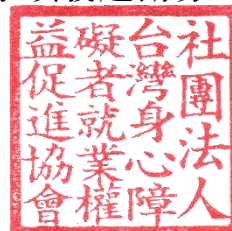 社團法人
台灣身心障
礙者就業權
益促進協會